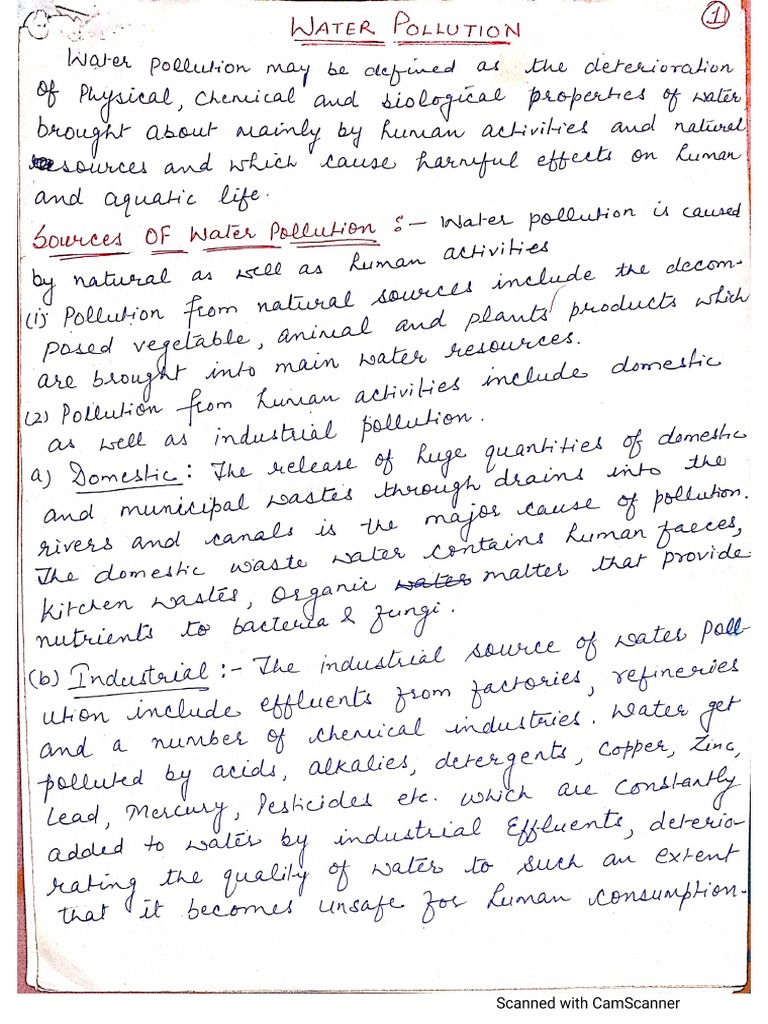 1
WATER POLLUTION
Water Pollution may be defined as the deterioration
of Physical, Chemical and biological properties of water
brought about mainly by human activities and natural
sources and which cause harmful effects on human
and aquatic life.
Sources OF Water Pollution :- Water pollution is caused
by natural as well as human activities
(1) Pollution from natural sources include the decom-
posed vegetable, animal and plants products which
are brought into main water resources.
(2) Pollution from human activities include domestic
as well as industrial pollution.
a) Domestic : The release of huge quantities of domestic
and municipal wastes through drains into the
rivers and canals is the major cause of pollution.
The domestic waste water contains human faeces,
Kitchen wastes, organic water matter that provide
nutrients to bacteria & fungi.
(b) Industrial :- The industrial source of water Poll-
ution include effluents from factories, refineries
and a number of chemical industries. Water get
polluted by acids, alkalies, detergents, Copper, Zinc,
Lead, Mercury, Pesticides etc. which are constantly
added to water by industrial Effluents, deterio-
rating the quality of water to such an extent
that it becomes unsafe for human consumption.
Scanned with CamScanner